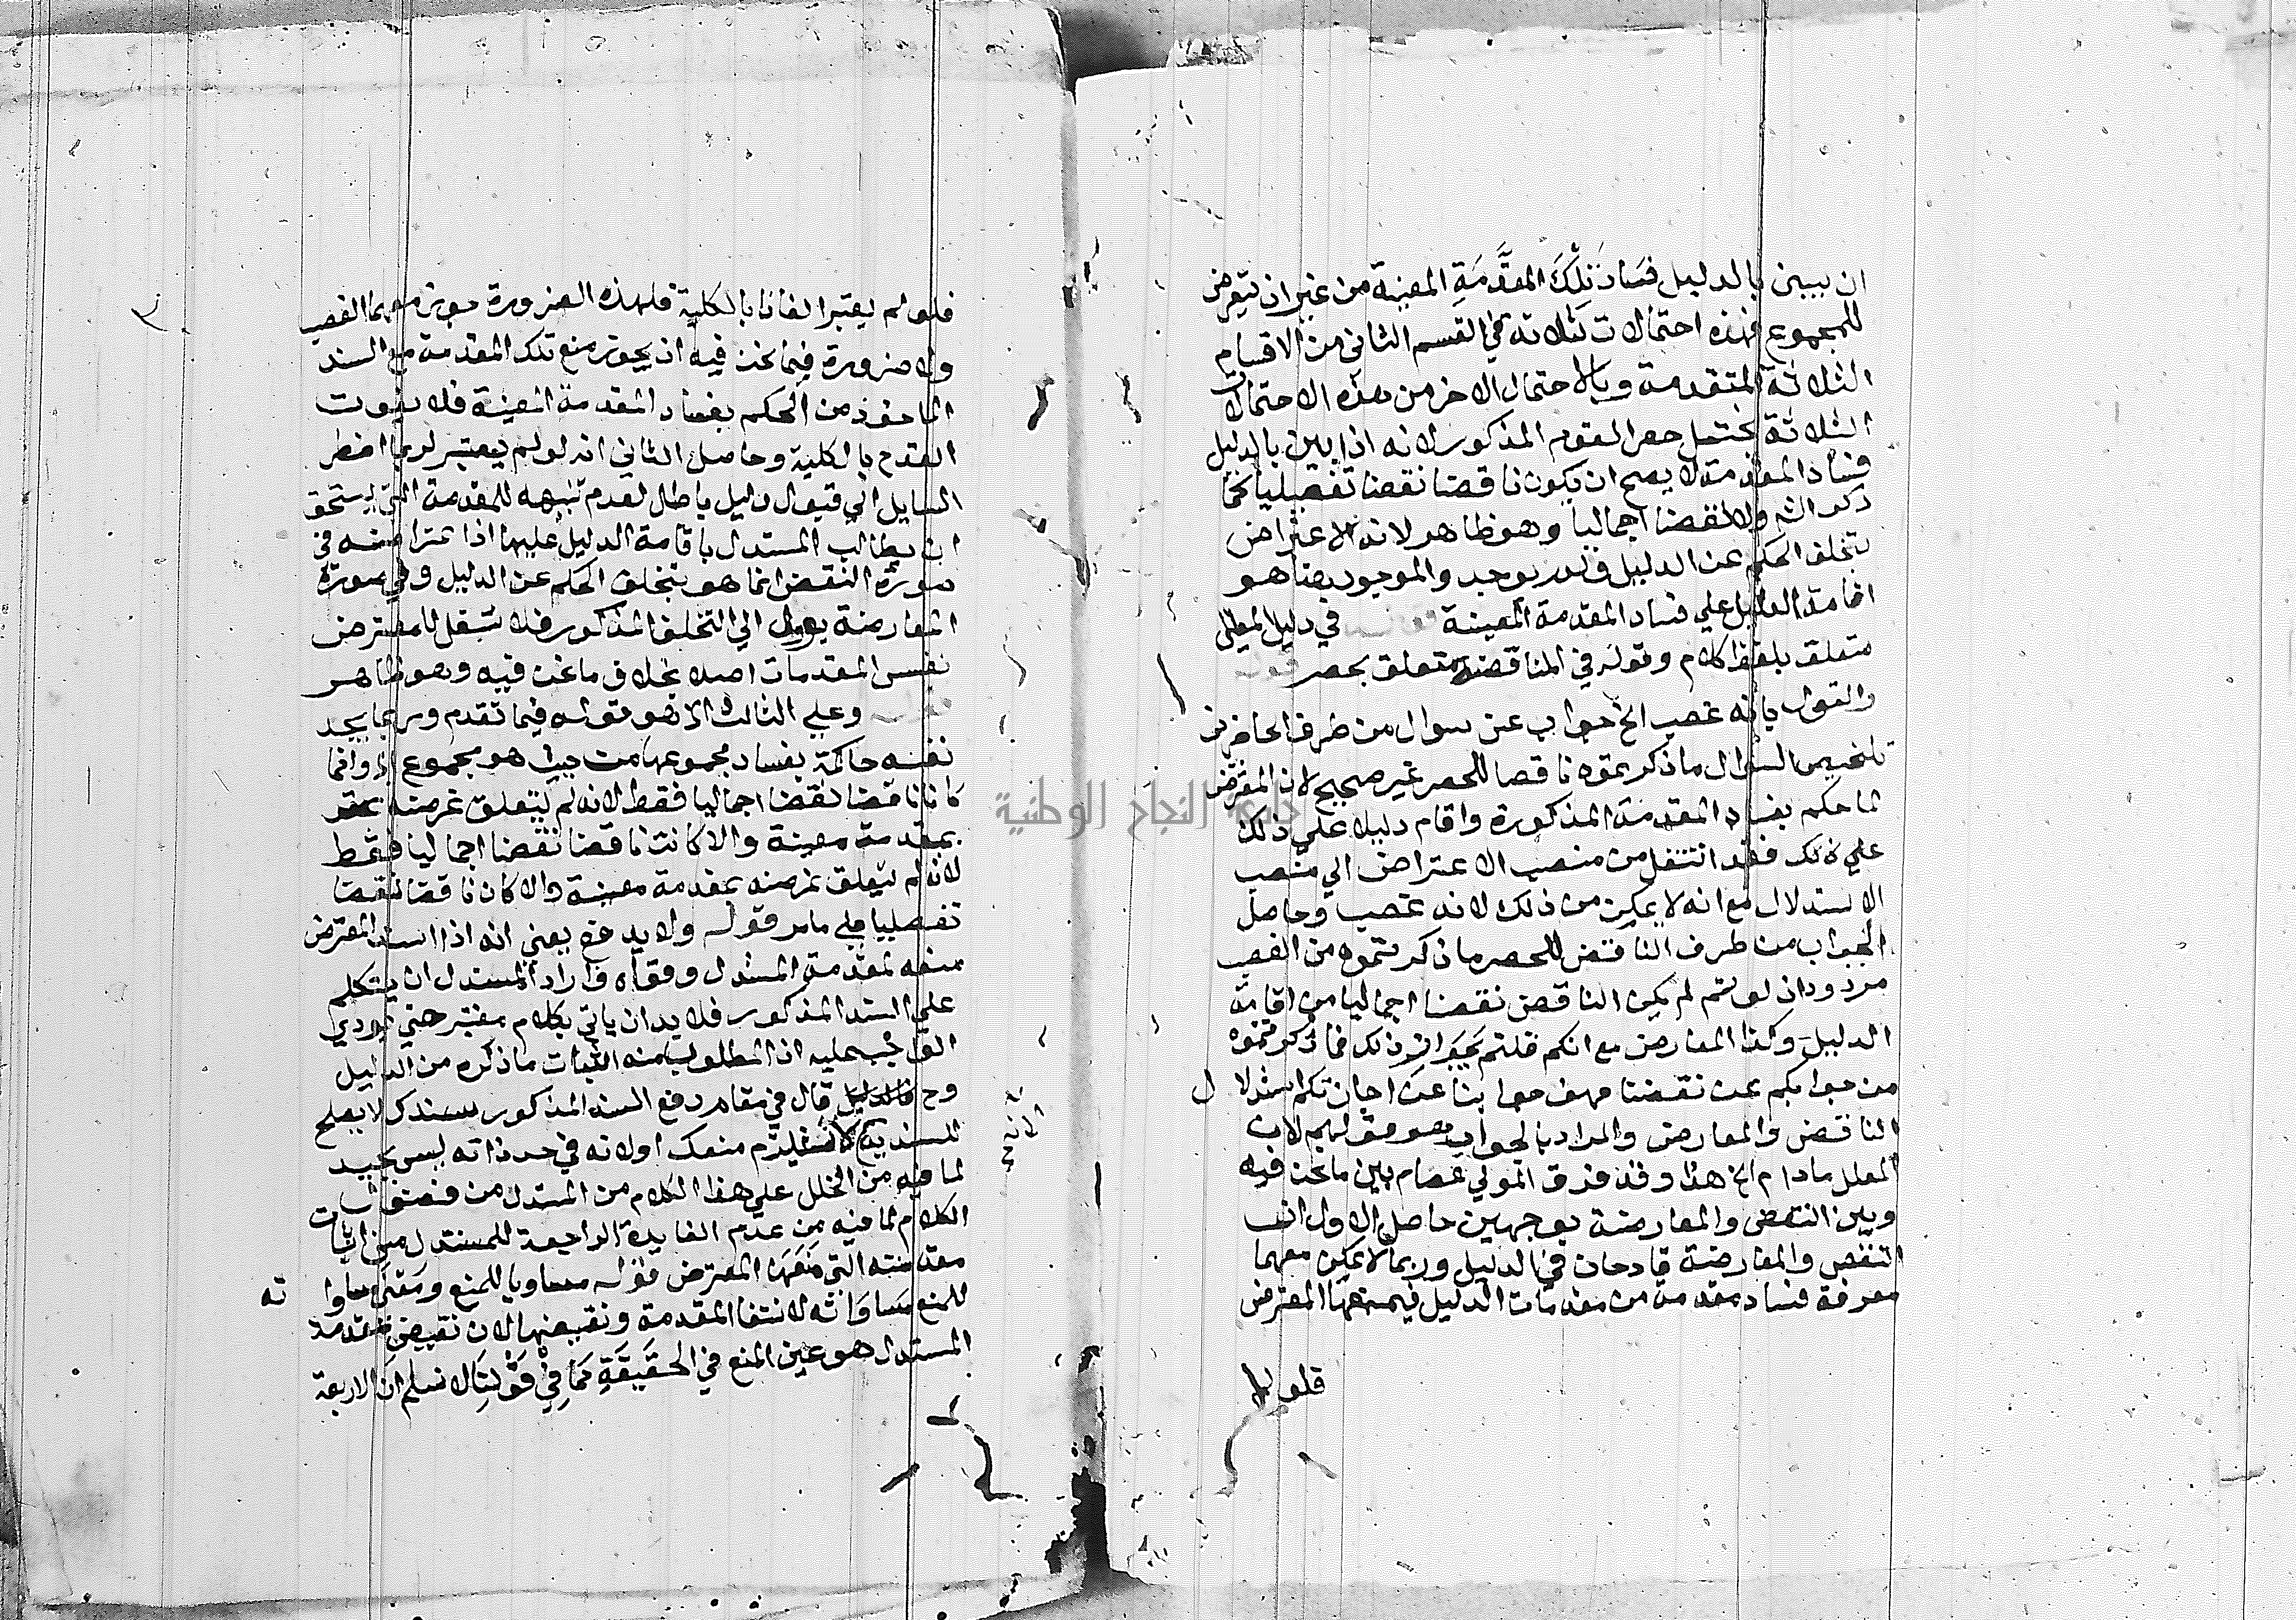 ان يبين بالدليل فسَادَ تِلْكَ المقَّدَمَةِ المعينة من غير ان يتعرض
للمجموع فهذه احتمالات ثلاثة في القسم الثاني من الاقسام
الثلاثة المتقدمة وبالاحتمال الاخر من هذه الاحتمالات
الثلاثة يختمل حصر القوم المذكور لانه اذا بين بالدليل
فساد المقدمة لا يصح ان يكون ناقضا نقضا تفصيليا كما
ذكر الشم ولا نقضا اجماليا وهو ظاهر لانه الاعتراض
بتخلف الحكم عن الدليل ولم يوجد والموجود هنا هو
اقامة الدليل علي فساد المقدمة المعينة في دليل المعلل
متعلق بلفظ كلام وقوله في المناقضة متعلق بحصر قوله
والقول بانه غصب الخ جواب عن سوال من طرف الحاضرين
تلخيص السوال ما ذكرتموه ناقضا للحصر غير صحيح لان المعترض
لما حكم بفساد المقدمة المذكورة واقام دليلا علي ذلك
علي ذلك فقد انتقل من منصب الاعتراض الي منصب
الاستدلال مع انه لا يمكن من ذلك لانه غصب وحاصل
الجواب من طرف الناقض للحصر ما ذكرتموه من الغصب
مردود اذ لو تم لم يكن الناقض نقضا اجماليا من اقامة
الدليل وكذا المعارض مع انكم قلتم بجواز ذلك فما ذكرتموه
من جوابكم عن نقضنا فهو جوابنا عن اجازتكم استدلال
الناقض والمعارض والمراد بالجواب هو قولهم لان
المعلل مادام الخ هذا وقد فرق المولي عصام بين ما نحن فيه
وبين النقض والمعارضة بوجهين حاصل الاول ان
النقض والمعارضة قادحان في الدليل وربما لا يمكن معهما
معرفة فساد مقدمة من مقدمات الدليل فيمنعها المعترض
فلو لم
فلو لم يعتبرا لفاتا بالكلية فلهذه الضرورة جوز معهما الغصب
ولا ضرورة فيما نحن فيه اذ يجوز منع تلك المقدمة مع السند
الماخوذ من الحكم بفساد المقدمة المعينة فلا يفوت
القدح بالكلية وحاصل الثاني انه لو لم يعتبر لربما اضطر
السايل الي قبول دليل باطل لعدم تنبهه للمقدمة التي يستحق
ان يطالب المستدل باقامة الدليل عليها اذ اعتراضه في
صورة النقض انما هو بتخلف الحكم عن الدليل وفي صورة
المعارضة يوول الي التخلف المذكور فلا شغل للمعترض
بنفس المقدمات اصلا بخلاف ما نحن فيه وهو ظاهر
وعلي الثالث الا هو قوله فيما تقدم وربما يجد
نفسه حاكمة بفساد مجموعها من حيث هو مجموع الخ وانما
كانا ناقضا نقضا اجماليا فقط لانه لم يتعلق غرضه
بمقدمة معينة والا كانت ناقضا نقضا اجماليا فقط
لانه لم يتعلق غرضه بمقدمة معينة والا كان ناقضا نقضا
تفصيليا علي ما مر قوله ولا يدفع يعني انه اذا اسند المعترض
منعه لمقدمة المستدل وقواه واراد المستدل ان يتكلم
علي السند المذكور فلا بد ان ياتي بكلام معتبر حتي يودي
الواجب عليه اذ المطلوب منه اثبات ما ذكره من الدليل
وح قال في مقام دفع السند المذكور سندك لا يصلح
للسندية لا يستلزم منعك اولانه في حد ذاته ليس بجيد
لما فيه من الخلل علي هذا الكلام من المستدل من فضول
الكلام لما فيه من عدم الفايدة الراجعة للمستدل من اثبات
مقدمته التي مَنَعَهَا المعترض قوله مساويا للمنع ومَعْني مساواته
للمنع مساوَاتُه لانتفا المقدمة ونقيضها لان نقيض مقدمة
المستدل هو عين المنع في الحَقَيقَةِ كَمَا فِيْ قَوْلِنَا لا نسلم ان الاربعة